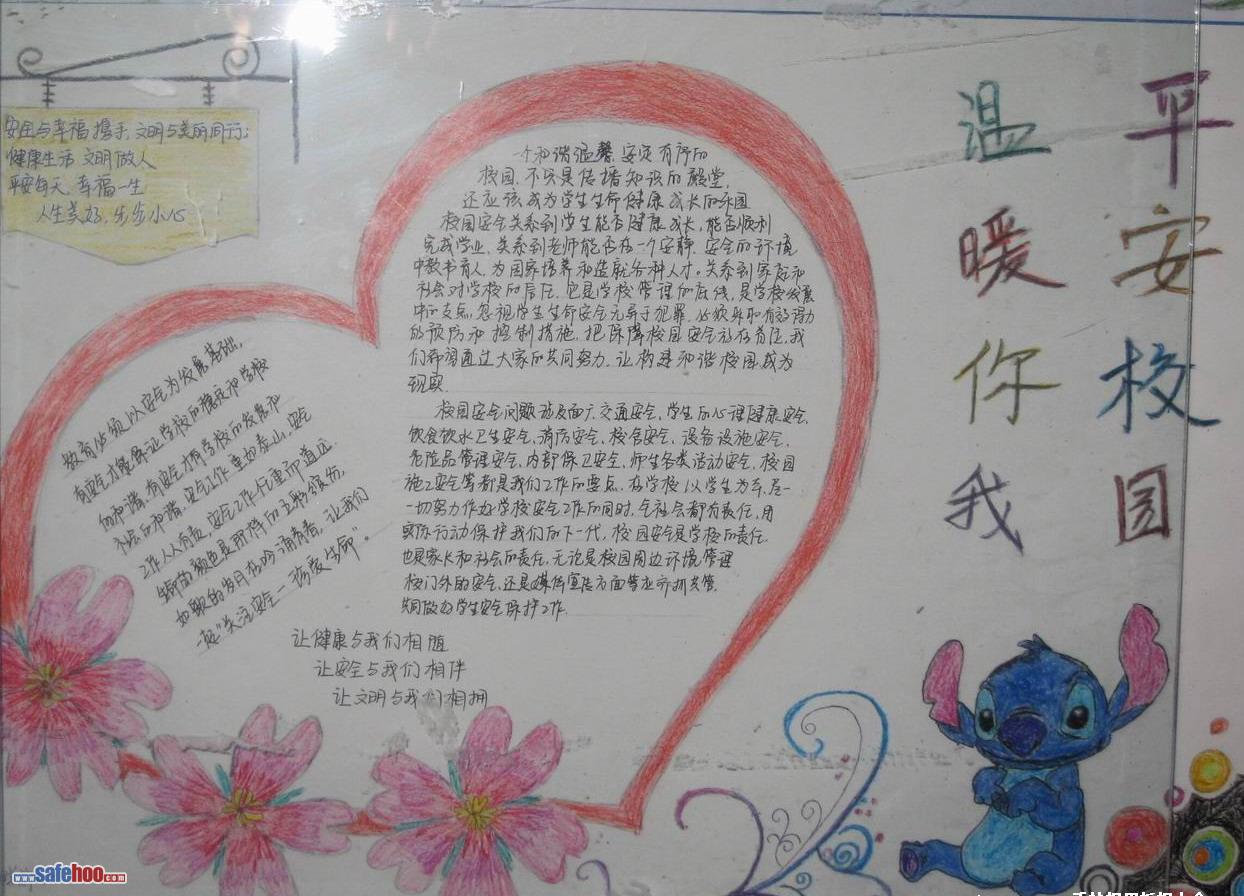 平安校园
温暖你我
安全与幸福携手,文明与美丽同行;
健康生活 文明做人
平安每天,幸福一生
人生美好,步步小心
一个和谐温馨、安定有序的
校园,不只是传播知识的殿堂,
还应该成为学生生命健康成长的乐园
校园安全关系到学生能否健康成长,能否顺利
完成学业,关系到老师能否在一个安静、安全的环境
中教书育人,为国家培养和造就各种人才。关系到家庭和
社会对学校的信任,它是学校管理的底线,是学校发展
中的支点,忽视学生生命安全无异于犯罪,必须采取有效得力
的预防和控制措施,把保障校园安全放在首位,我
们希望通过大家的共同努力,让构建和谐校园成为
现实.
校园安全问题涉及面广,交通安全,学生的心理健康安全,
饮食饮水卫生安全,消防安全,校舍安全,设备设施安全,
危险品管理安全,内部保卫安全,师生各类活动安全,校园
施工安全等都是我们工作的要点,在学校以学生为本,尽一
切努力作好学校安全工作的同时,全社会都有责任,用
实际行动保护我们的下一代,校园安全是学校的责任,
也是家长和社会的责任,无论是校园周边环境管理
校门外的安全,还是媒体宣传方面等应齐抓共管,
共同做好学生安全保护工作.
教育必须以安全为发展基础,
有安全才能保证学校的稳定和学校
的和谐,有安全才有学校的发展和
永远的和谐,安全工作重如泰山,安全
工作人人有责,安全工作任重而道远.
缤纷的颜色是那样的五彩缤纷,
如歌的岁月在吟诵青春,让我们
一起“关注安全——珍爱生命”。
让健康与我们相随
让安全与我们相伴
让文明与我们相拥
www.safehoo.com